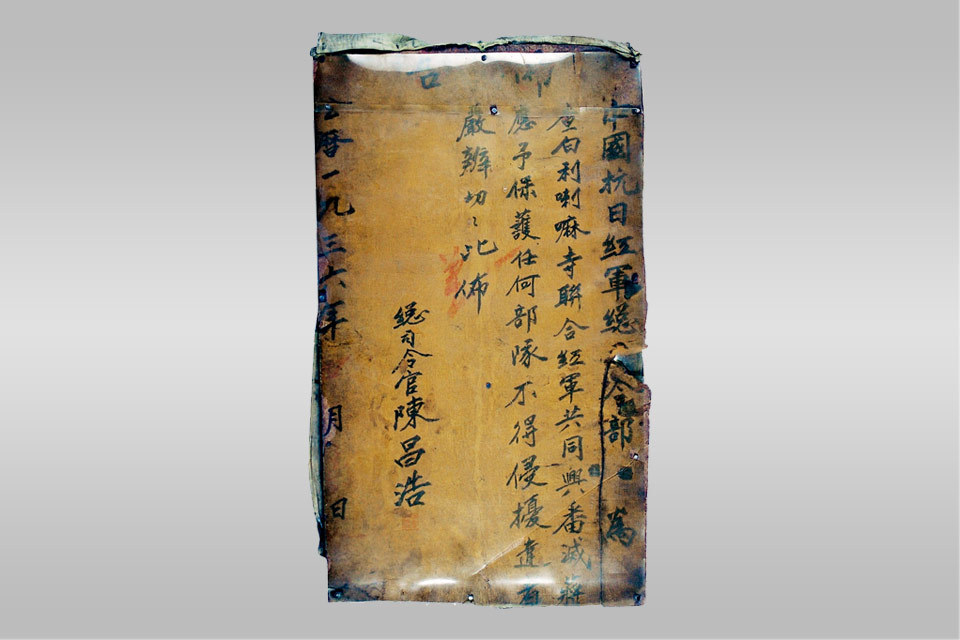 中國抗日紅軍總司令部 為
佈告
查白利喇嘛寺聯合紅軍共同興番滅蔣
應予保護任何部隊不得侵擾違者
嚴辦切〻此佈
總司令官陳昌浩
公曆一九三六年 月 日